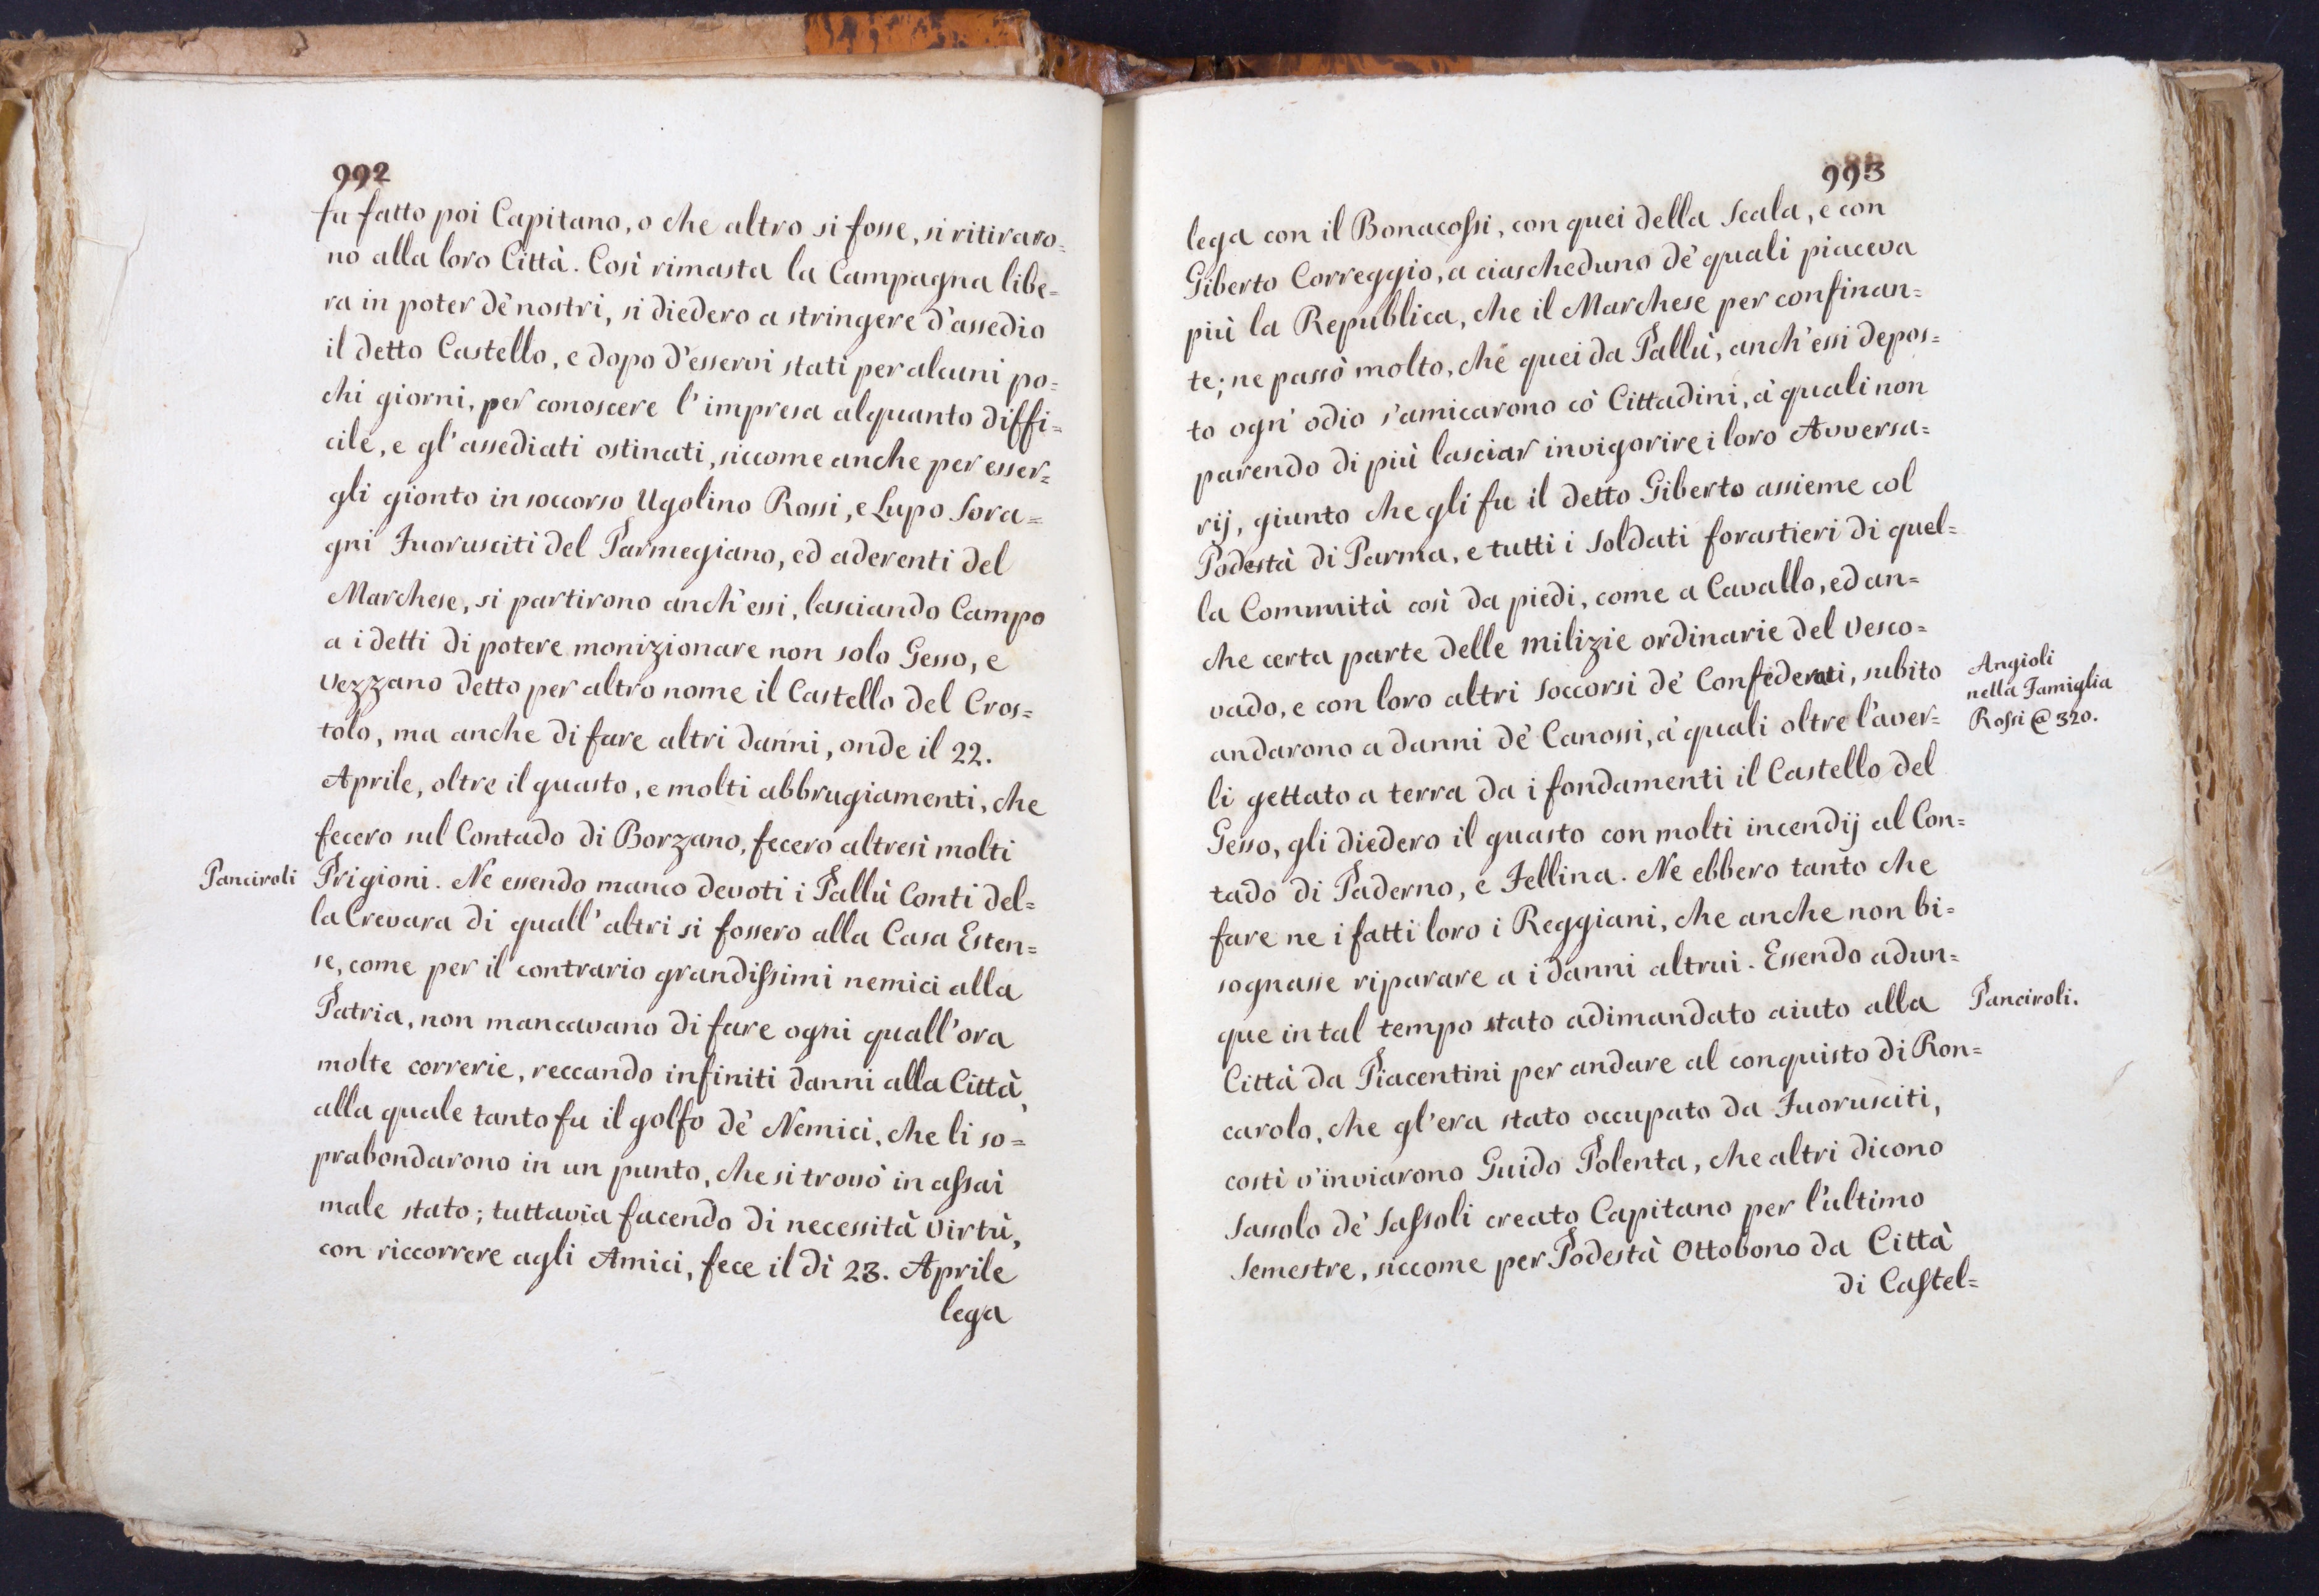 992
fu fatto poi Capitano, o che altro si fosse, si ritiraro=
no alla loro Città. Così rimasta la Campagna libe=
ra in poter dè nostri, si diedero a stringere d'assedio
il detto Castello, e dopo d'esservi stati per alcuni po=
chi giorni, per conoscere l'impresa alquanto diffi=
cile, e gl'assediati ostinati, siccome anche per esser=
gli gionto in soccorso Ugolino Rossi, e Lupo Sora=
gni Fuorusciti del Parmegiano, ed aderenti del
Marchese, si partirono anch'essi, lasciando Campo
a i detti di potere monizionare non solo Gesso, e
Vezzano detto per altro nome il Castello del Cros=
tolo, ma anche di fare altri danni, onde il 22.
Aprile, oltre il guasto, e molti abbrugiamenti, che
fecero sul Contado di Borzano, fecero altresì molti
Panciroli
Prigioni. Ne essendo manco devoti i Pallù Conti del=
la Crevara di quall'altri si fossero alla Casa Esten=
se, come per il contrario grandissimi nemici alla
Patria, non mancavano di fare ogni quall'ora
molte correrie, reccando infiniti danni alla Città,
alla quale tanto fu il golfo dè Nemici, che li so=
prabondarono in un punto, che si trovò in assai
male stato; tuttavia facendo di necessità virtù,
con riccorrere agli Amici, fece il dì 23. Aprile
lega
993
lega con il Bonacossi, con quei della Scala, e con
Giberto Correggio, a ciascheduno dè quali piaceva
più la Republica, che il Marchese per confinan=
te; ne passò molto, che quei da Pallù, anch'essi depos=
to ogn'odio s'amicarono cò Cittadini, à quali non
parendo di più lasciar invigorire i loro Avversa=
rij, giunto che gli fu il detto Giberto assieme col
Podestà di Parma, e tutti i soldati forastieri di quel=
la Comunità così da piedi, come a Cavallo, ed an=
che certa parte delle milizie ordinarie del Vesco=
vado, e con loro altri soccorsi dè Confederati, subito
andarono a danni dè Canossi, à quali oltre l'aver=
li gettato a terra da i fondamenti il Castello del
Gesso, gli diedero il guasto con molti incendij al Con=
tado di Paderno, e Fellina. Ne ebbero tanto che
fare ne i fatti loro i Reggiani, che anche non bi=
sognasse riparare a i danni altrui. Essendo adun=
que in tal tempo stato adimandato aiuto alla
Città da Piacentini per andare al conquisto di Ron=
carolo, che gl'era stato occupato da Fuorusciti,
costì v'inviarono Guido Polenta, che altri dicono
Sassolo dè Sassoli creato Capitano per l'ultimo
Semestre, siccome per Podestà Ottobono da Città
di Castel=
Angioli
nella Famiglia
Rossi @ 320.
Panciroli.